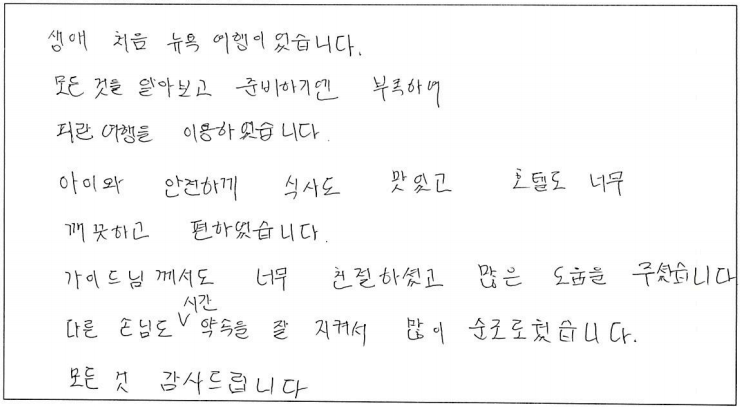 생애 처음 뉴욕 여행이 있습니다.
모든 것을 알아보고 준비하기엔 부족하여
피란 여행을 이용하였습니다.
아이와 안전하게 식사도 맛있고 호텔도 너무
깨끗하고 편하였습니다.
가이드님께서도 너무 친절하셨고 많은 도움을 주셨습니다
다른 손님도 시간 약속을 잘 지켜서 많이 순조로웠습니다.
모든 것 감사드립니다